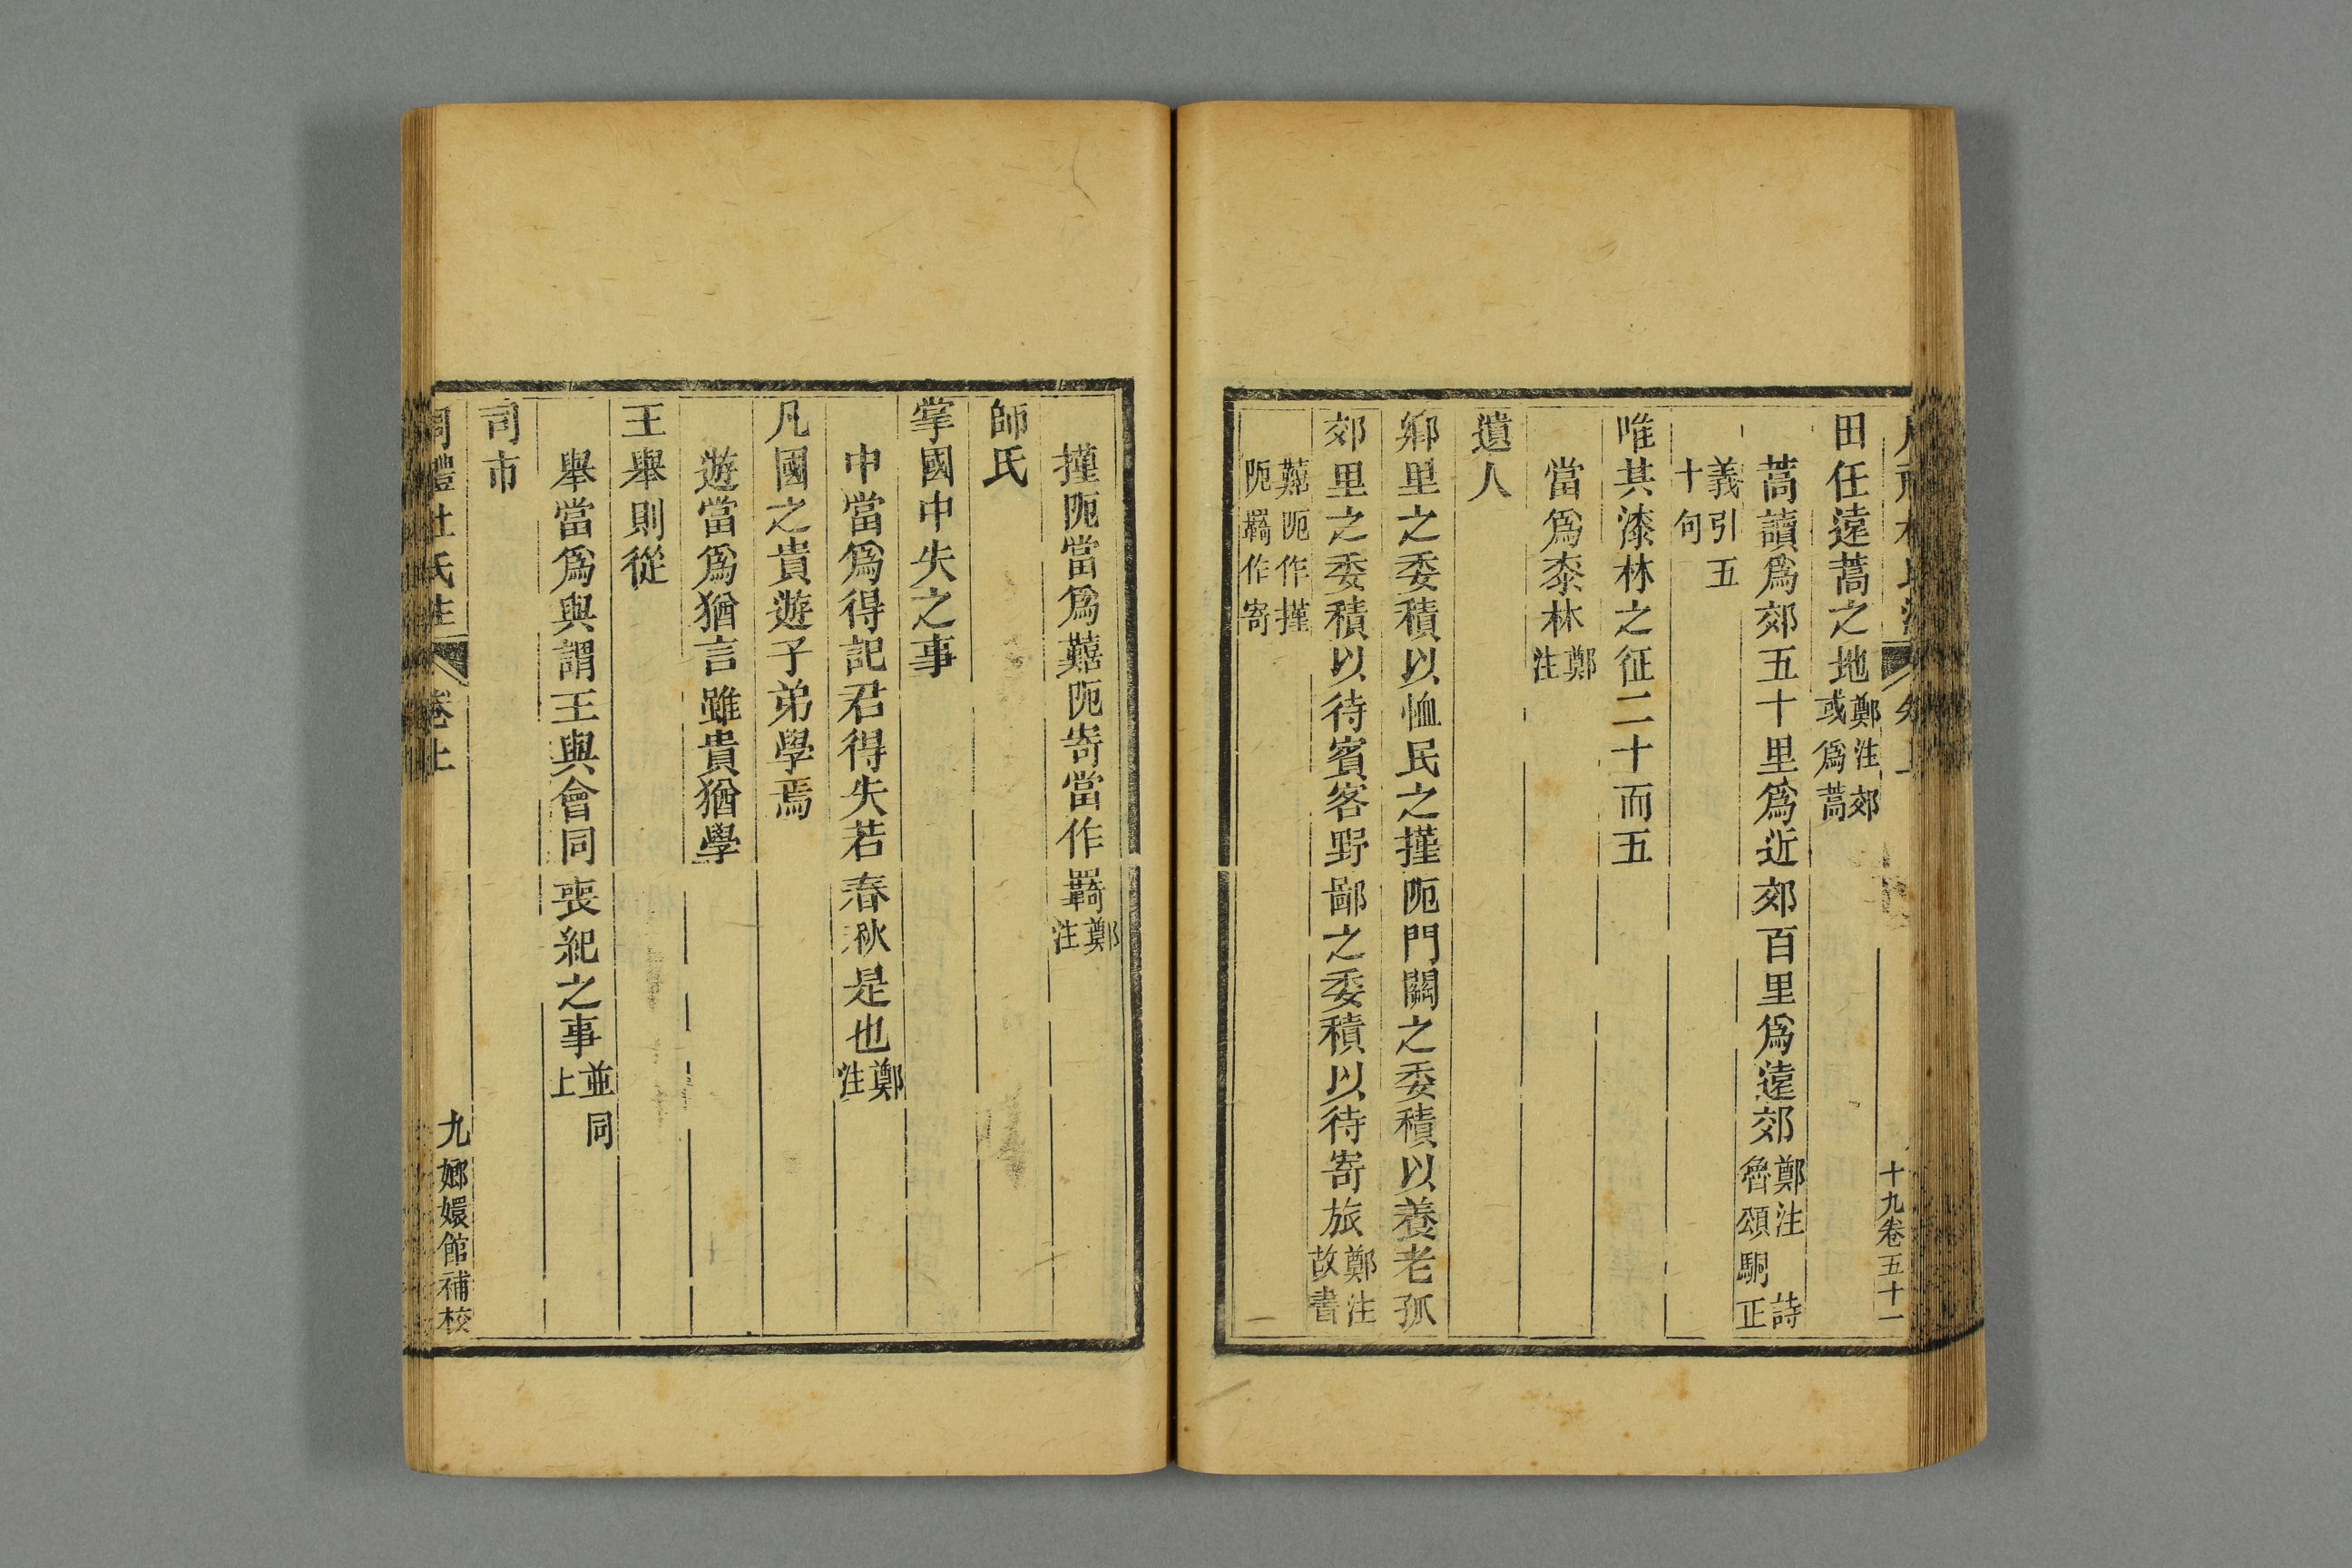 十九卷五十一
田任遠蒿之地鄭注郊或為蒿
蒿讀為郊五十里為近郊百里為遠郊鄭注 詩魯頌駉正
義引五十句
唯其漆林之征二十而五
當為桼林鄭注
遺人
鄉里之委積以恤民之㨷阨門關之委積以養老孤
郊里之委積以待賓客野鄙之委積以待寄旅鄭注故書
囏阨作㨷阨羇作寄
㨷阨當為囏阨寄當作羇鄭注
師氏
掌國中失之事
中當為得記君得失若春秋是也鄭注
凡國之貴遊子弟學焉
遊當為猶言雖貴猶學
王舉則從
舉當為與謂王與會同喪紀之事並同上
司市
周禮杜氏注 卷上 九嫏嬛館補校